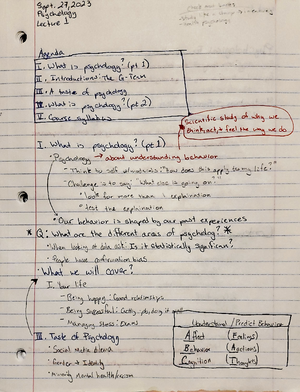 Sept. 27, 2023
Psychology
Lecture 1
Agenda
I. What is psychology? (pt 1)
II. Introductions: The G-Team
III. A taste of psychology
IV. What is psychology? (pt 2)
V. Course syllabus
Scientific study of why we
think, act, & feel the way we do
I. What is psychology? (pt 1)
- Psychology → about understanding behavior
- Think to self: "how does this apply to my life?"
- Challenge is to say: "What else is going on"
- look for more than 1 explanation
- test the explanation
- Our behavior is shaped by our past experiences
* Q: What are the different areas of psychology? *
- When looking at data ask: Is it statistically significant?
- People have confirmation bias
- What we will cover?
I. Our life
- Being happy: Good relationships
- Being successful: Getting
- Managing stress:
III. Taste of Psychology
- Social media dilema
- Gender + Identity
- Minority mental health/racism
Understand / Predict Behavior
Affect (Feelings)
Behavior (Actions)
Cognition (Thoughts)